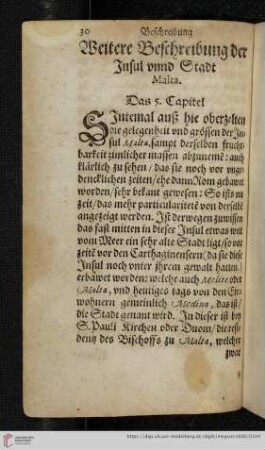 30 Beschreibung
Weitere Beschreibung der
Insul vnnd Stadt
Malta.
Das 5. Capitel
SIntemal auß hie oberzelten
die gelegenheit vnd grössen der In-
sul Malta, sampt derselben frucht-
barkeit zimlicher massen abzunemē: auch
klärlich zu sehen / das sie noch vor vnge-
dencklichen zeiten / ehe dann Rom gebawet
worden / sehr bekant gewesen: So ists an
zeit / das mehr particularitetē von derselbē
angezeigt werden. Ist derwegen zuwissen
das fast mitten in dieser Insul etwas weit
vom Meer ein sehr alte Stadt ligt / so vor
zeitē von den Carthaginensern (da sie diese
Insul noch vnter jhrem gewalt hatten /
erbawet worden: welche auch Melite oder
Malta, vnd heutiges tags von den Ein-
wohnern gemeinlich Medina, das ist /
die Stadt genant wird. In dieser ist bey
S. Pauli Kirchen oder Duom / die resi-
dentz des Bischoffs zu Malta, welcher
zwar